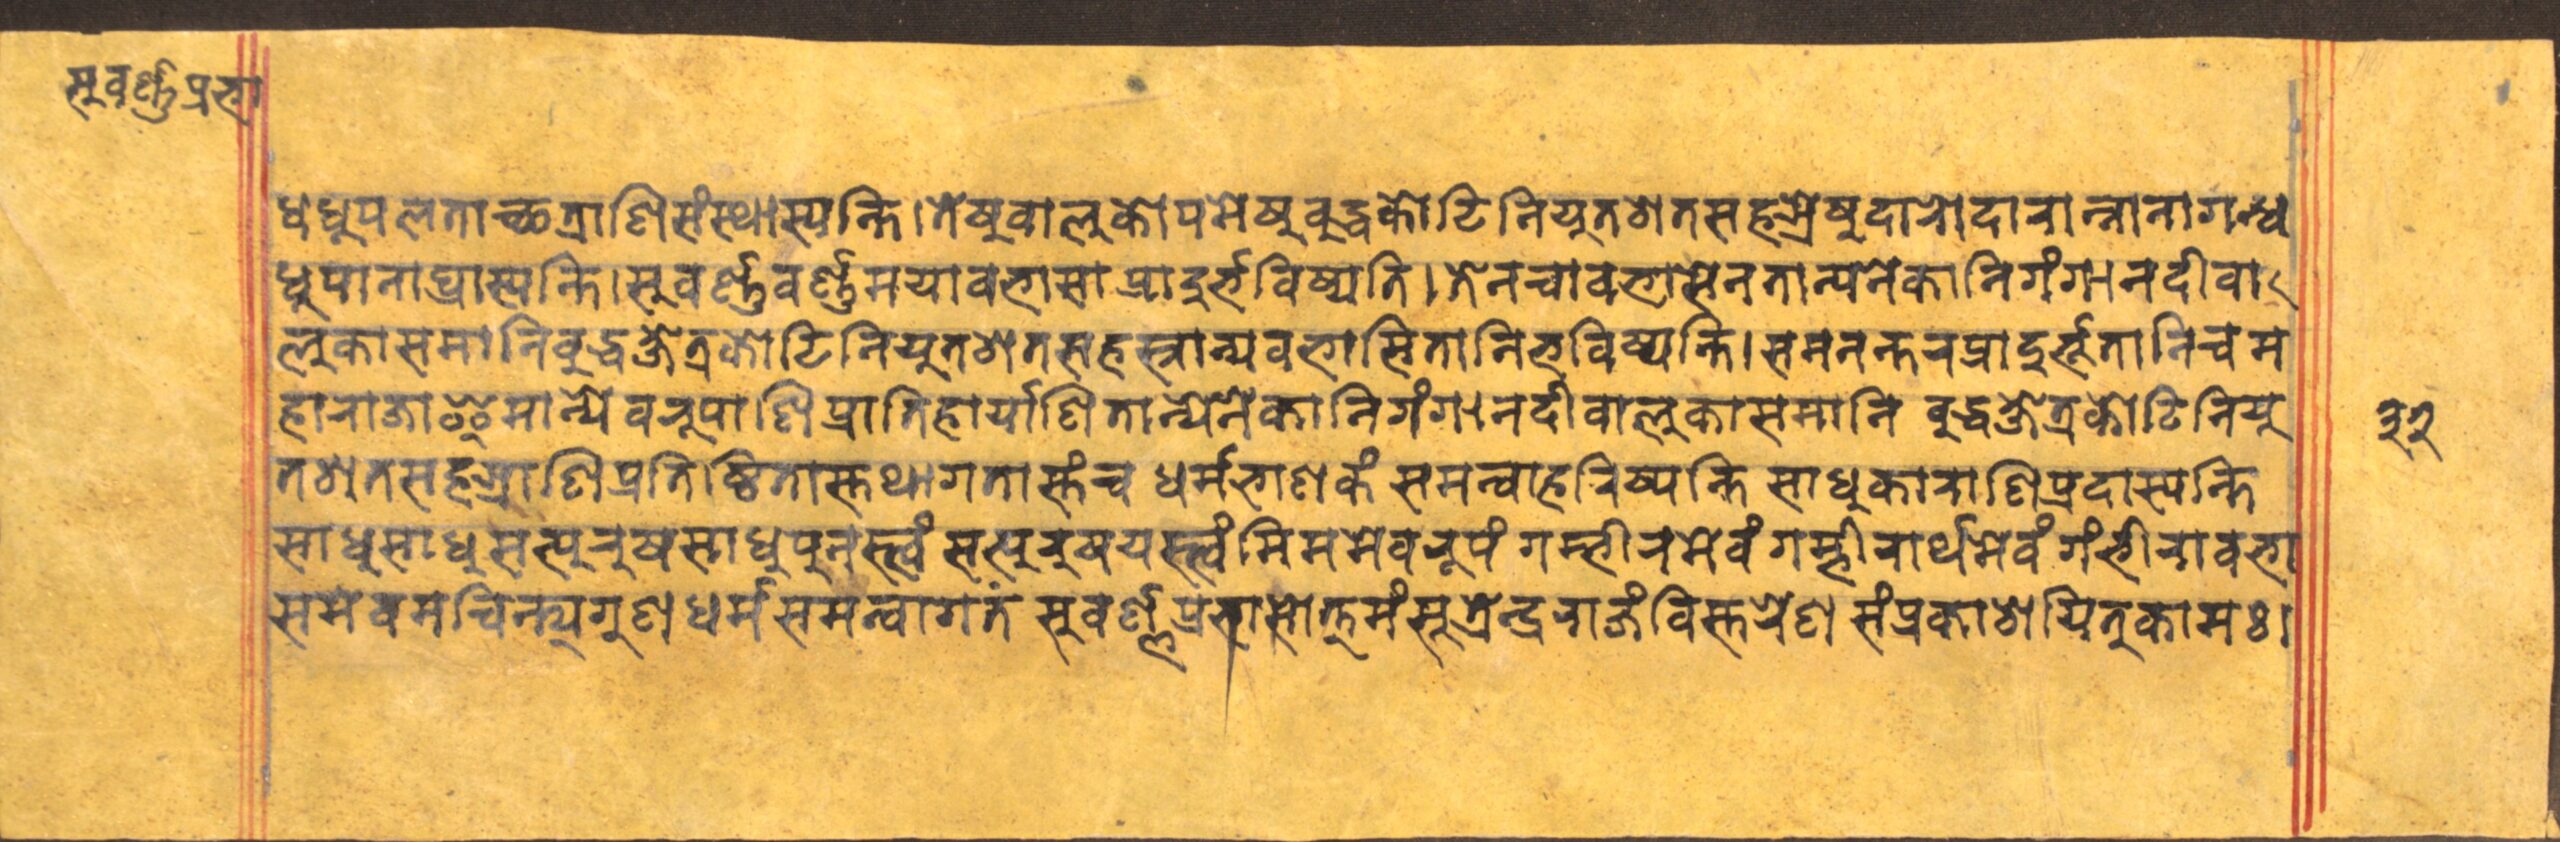 सुवर्ण्णप्रभा
धधूपलताच्छत्राणिसंस्थास्यन्ति।तेषुवालुकोपमेषुबुद्धकोटिनियुतशतसहस्रेषुदारोदारान्नानागन्ध
धूपानाघ्रास्यन्ति।सुवर्ण्णवर्ण्णमयावभासाप्रादुर्भविष्यति।तेनचावभासेनतान्यनेकानिगंगानदीवा
लुकासमानिबुद्धक्षेत्रकोटिनियुतशतसहस्त्रान्यवभासितानिभविष्यन्ति।समनन्तरप्रादुर्भूतानिचम
हाराजाॐमान्येवरूपाणिप्रातिहार्याणितान्येनेकानिगंगानदीवालुकासमानि बुद्धक्षेत्रकोटिनियु
तशतसहस्राणिप्रतिष्ठितास्तथागतास्तंच धर्मभाणकं समन्वाहरिष्यन्ति साधुकाराणिप्रदास्यन्ति
साधुसाधुसत्पुरुषसाधुपुनस्त्वं सत्पुरुषयस्त्वंमिममेवरूपं गम्भीरमेवंगम्भीरार्थमेवं गंभीरावभा
समेवमचिन्त्यगुणधर्मसमन्वागतं सुवर्ण्णप्रभासोत्तमंसूत्रेन्द्रराजंविस्तरेण संप्रकाशयितुकामः।
३२